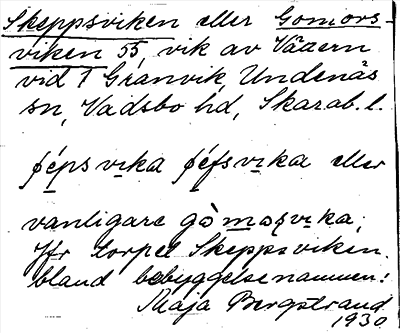 Skeppsviken eller Gomors-
viken 55, vik av Vättern
vid T Granvik, Undenäs
sn, Vadsbo hd, Skarab. l.
ʃéps vıka ʃéfsvıka eller
vanligare gòmoʂvıka;
Jfr torpet Skeppsviken
bland bebyggelsenamnen!
Maja Bergstrand
1930